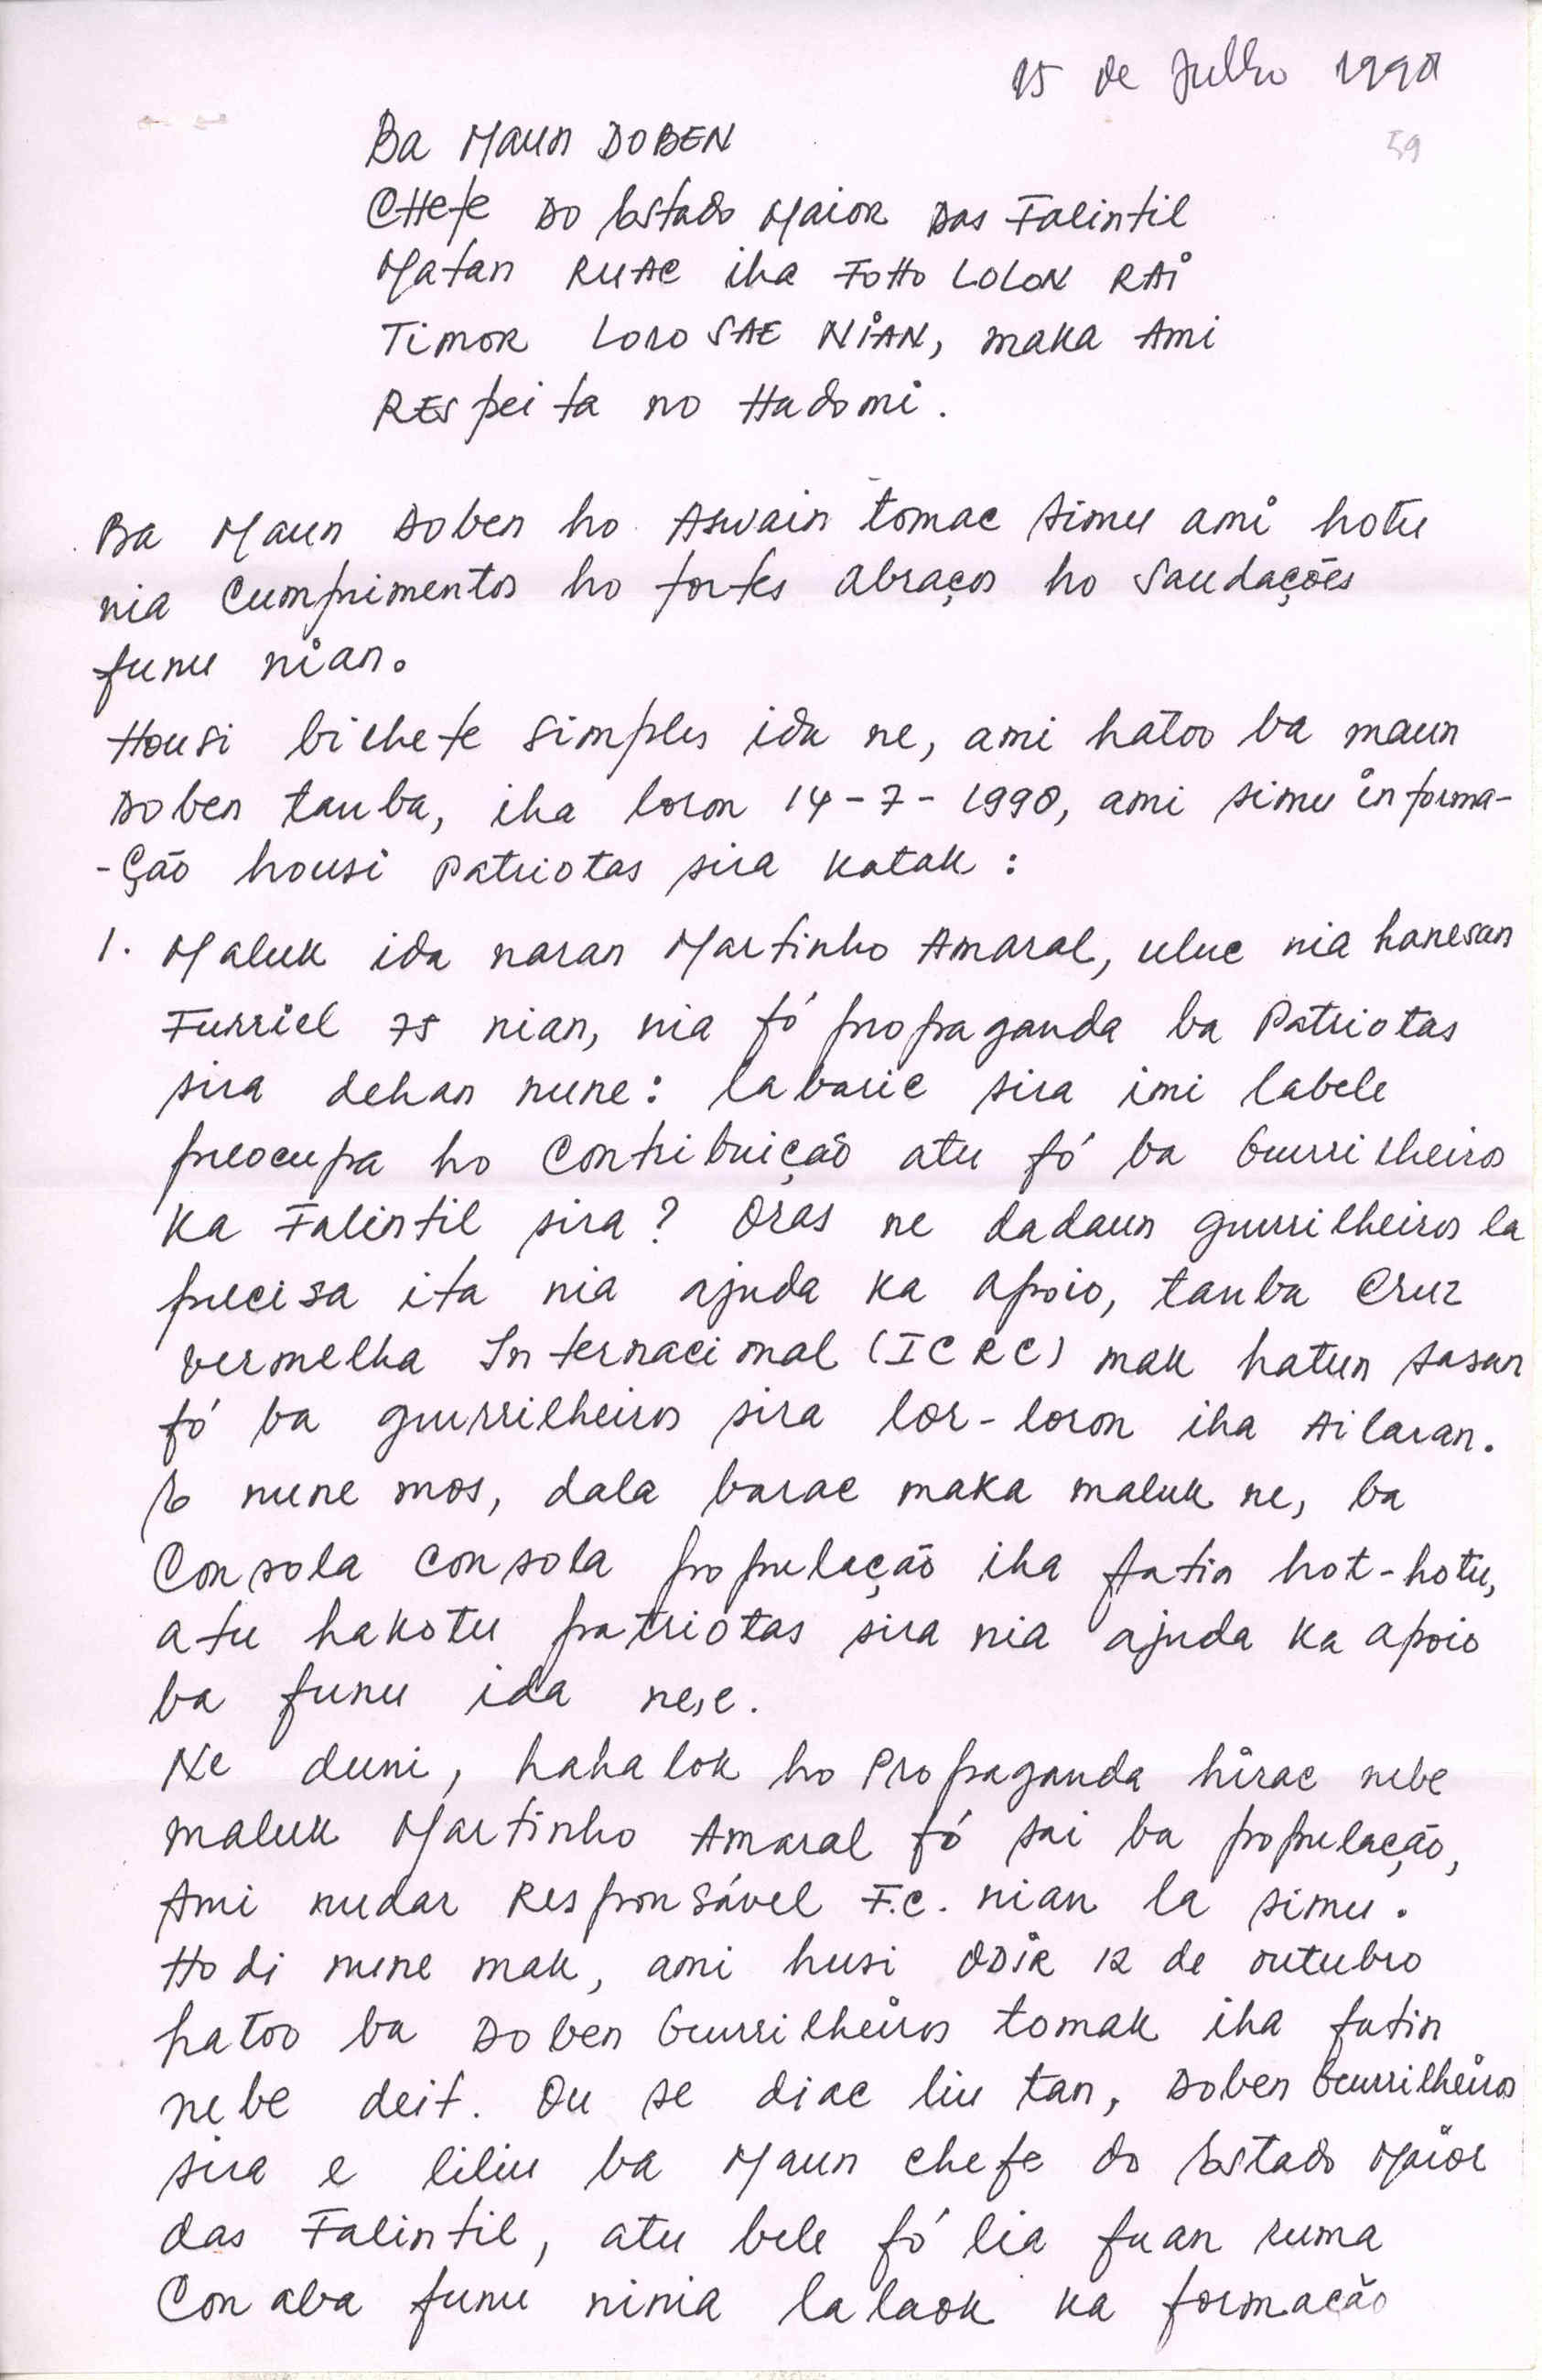 15 de Julho 1998
59
Ba Maun DOBEN
CHefe DO Estado Maior DAS Falintil
Matan RUAC iha FOHO LOLON RAi
TimOR Loro SAE NiAN, maka Ami
REspeita no Hadomi.
Ba Maun Doben ho Aswain tomac simu ami hotu
nia Cumprimentos ho fortes abraços ho Saudações
funu nian.
Housi bilhete simples ida ne, ami hatoo ba maun
Doben tauba, iha loron 14-7-1998, ami simu informa-
-ção housi Patriotas sira katak:
1. Maluk ida naran Martinho Amaral, uluc nia hanesan
Furriel 75 nian, nia fó propaganda ba Patriotas
sira dehan nune: labaric sira imi labele
preocupa ho Contribuição atu fó ba Guerrilheiros
Ka Falintil sira? Oras ne dadaun guerrilheiros la
precisa ita nia ajuda ka apoio, tauba Cruz
vermelha Internacional (ICRC) mak hatun sasan
fó ba guerrilheiros sira lor-loron iha Ailaran.
E nune mos, dala barac maka maluk ne, ba
Consola consola população iha fatin hot-hotu,
atu hakotu patriotas sira nia ajuda ka apoio
ba funu ida ne,e.
Ne duni, hahalok ho Propaganda hirac nebe
maluk Martinho Amaral fó sai ba população,
Ami nudar Responsável F.C. nian la simu.
Hodi nune mak, ami husi ODIR 12 de outubro
hatoo ba Doben Guerrilheiros tomak iha fatin
nebe deit. Ou se diac liu tan, Doben Guerrilheiros
sira e liliu ba Maun chefe do Estado Maior
das Falintil, atu bele fó lia fuan ruma
Conaba funu ninia lalaok ka formação